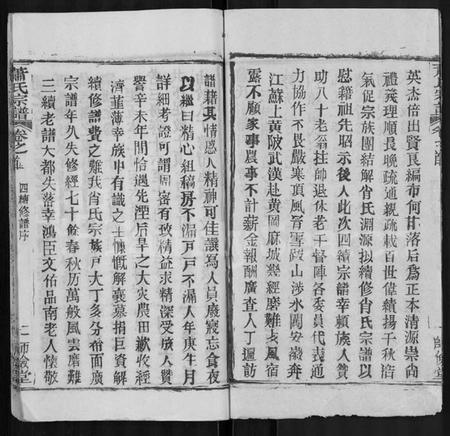 英杰倍出賢良編巿何甘落后爲正本清源崇尚
禮義理順長晩疏通統疏載百世偉績揚千秋浩
氣促宗族團結解肖氏淵源拟續修肖氏宗譜以
慰籍祖先昭示後人此次四續宗譜幸頼族人贊
助八十老翁拄師退休老干督陣各委員代表通
力協作不畏嚴寒頂風雪踏山涉水闖安徽奔
江蘇上黄陂武漢赴黄岡麻城幾經磨難戋風宿
露不顧家事農事不計薪金報酬廣查人丁遍訪
譜藉其情感人精神可佳議寫人員廢寢忘食夜
以繼日精心組稿房不漏戸戸不漏人年庚生月
詳細考證可謂周密有致精益求精深受族人贊
譽辛未年間恰遇先涇后旱之大灾農田歉收經
濟韮薄幸族中有識之士慷慨解囊募捐巨資解
續修譜費之難我肖氏宗族戸大丁多分布面廣
宗譜年久失修經七十餘春秋历萬般風雲磨難
三續老譜大都失落幸鴻臣文佑品南老人懷敬
蕭氏宗譜 卷之首 四續修譜序 二 師儉堂